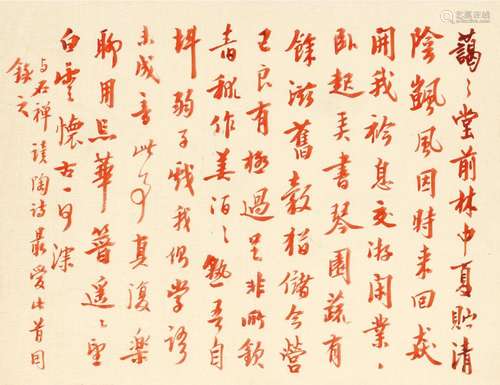 藹〻堂前林中夏貯清
陰颽風因時来回猋
開我衿息交游閑業
卧起弄書琴園蔬有
餘滋舊穀猶儲今營
己良有極過足非所欽
舂秫作美酒〻熟吾自
斟弱子戲我側學語
未成音此事真復樂
聊用忘華簪遥〻望
白雲懷古一何深
与石禅讀陶詩最愛此首因
録之